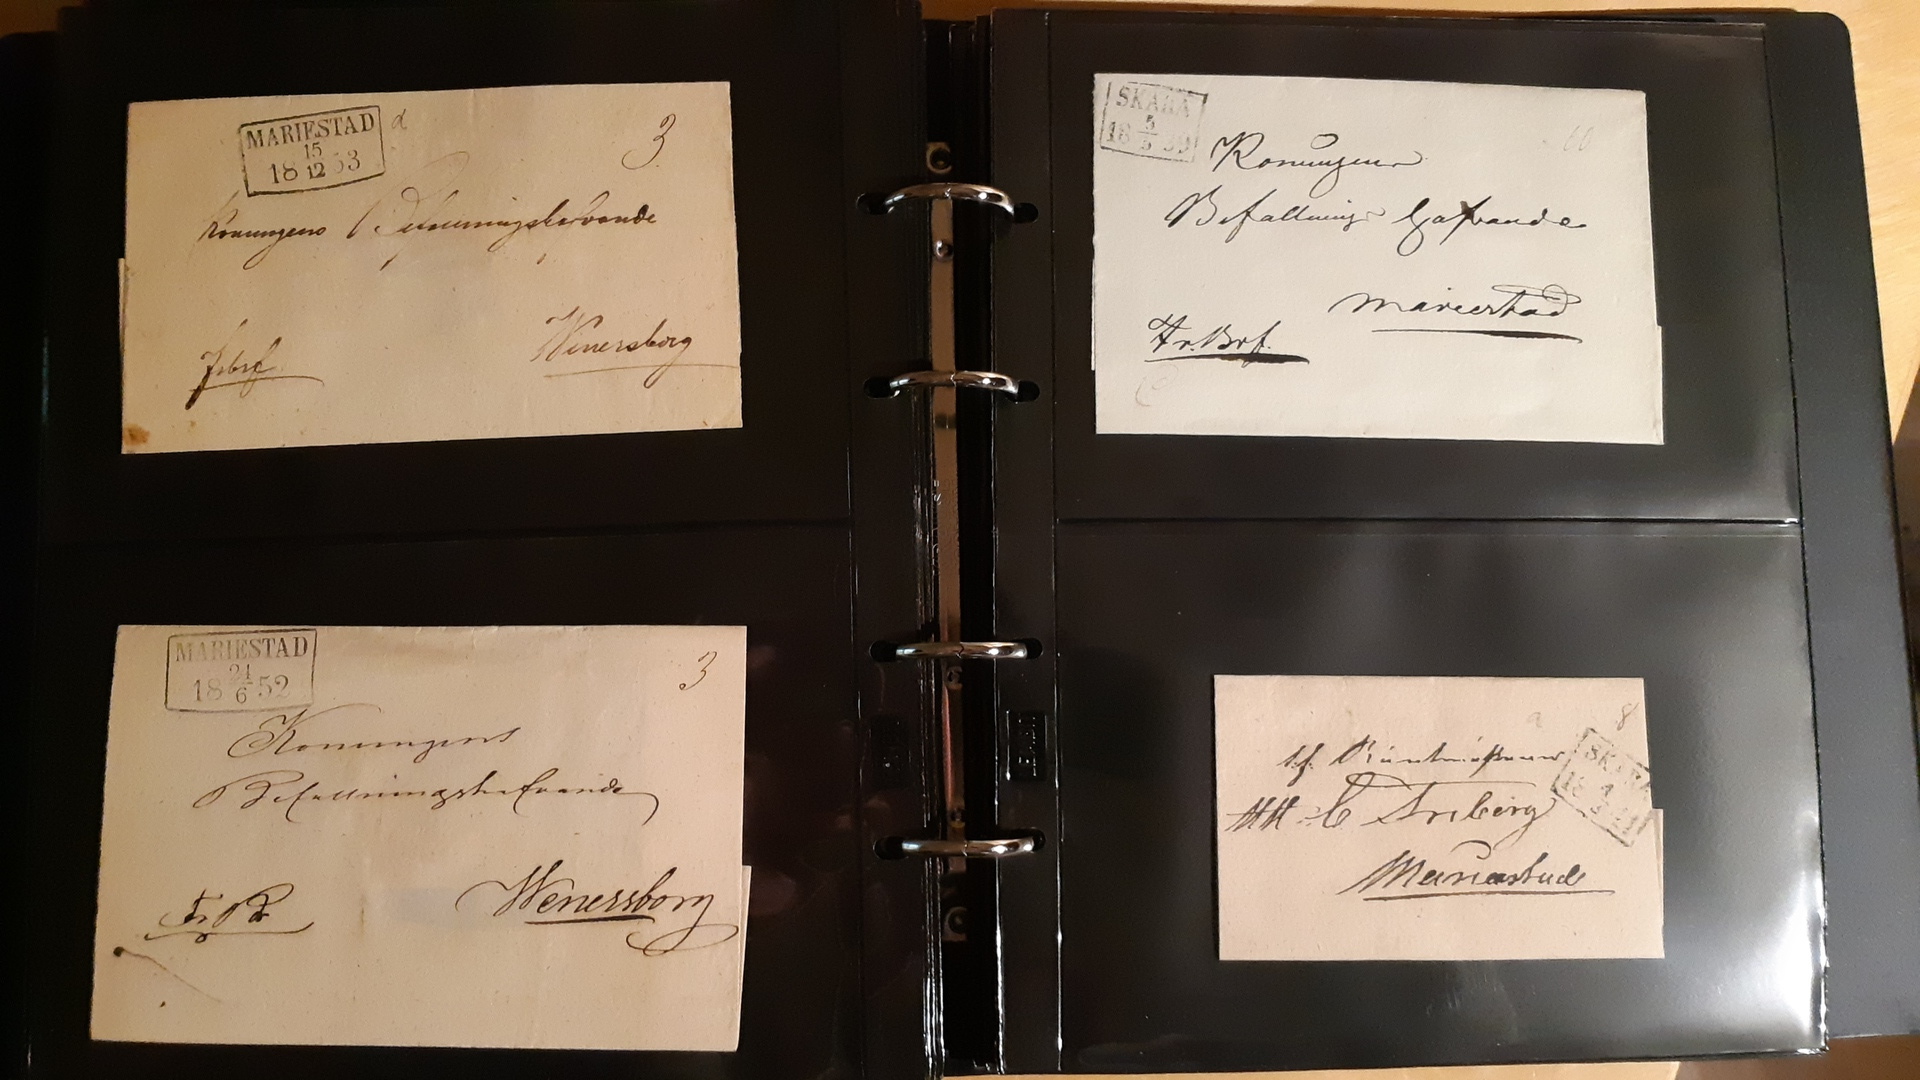 MARIESTAD
15
18 12 53
d
3
Konungens Befallningshafvande
Wenersborg
Frbrf
MARIESTAD
24
18 6 52
3
Konungens
Befallningshafvande
Wenersborg
Fr Br
SKARA
5
18 5 39
60
Konungens
Befallnings Hafvande
Mariestad
Fr. Brf.
8
SKARA
4
18
Friberg
Mariestad